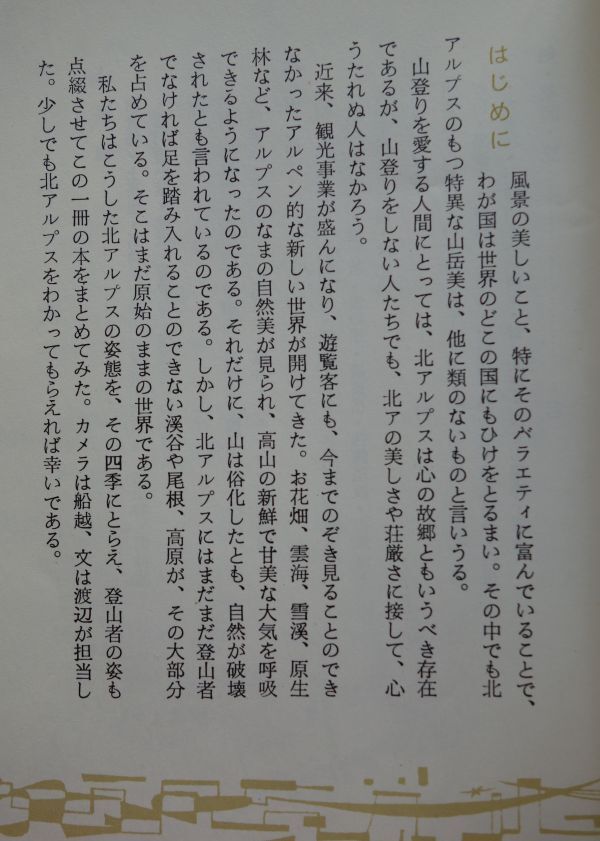 はじめに
風景の美しいこと、特にそのバラエティに富んでいることで、
わが国は世界のどこの国にもひけをとるまい。その中でも北
アルプスのもつ特異な山岳美は、他に類のないものと言いうる。
山登りを愛する人間にとっては、北アルプスは心の故郷ともいうべき存在
であるが、山登りをしない人たちでも、北アの美しさや荘厳さに接して、心
うたれぬ人はなかろう。
近来、観光事業が盛んになり、遊覧客にも、今までのぞき見ることのでき
なかったアルペン的な新しい世界が開けてきた。お花畑、雲海、雪溪、原生
林など、アルプスのなまの自然美が見られ、高山の新鮮で甘美な大気を呼吸
できるようになったのである。それだけに、山は俗化したとも、自然が破壊
されたとも言われているのである。しかし、北アルプスにはまだまだ登山者
でなければ足を踏み入れることのできない溪谷や尾根、高原が、その大部分
を占めている。そこはまだ原始のままの世界である。
私たちはこうした北アルプスの姿態を、その四季にとらえ、登山者の姿も
点綴させてこの一冊の本をまとめてみた。カメラは船越、文は渡辺が担当し
た。少しでも北アルプスをわかってもらえれば幸いである。